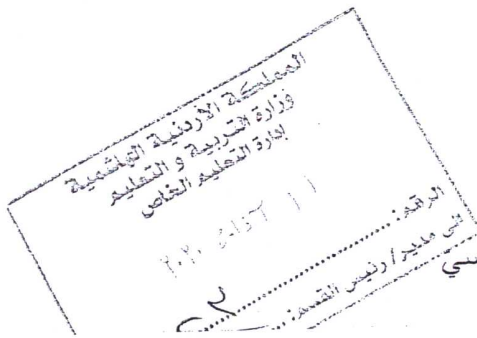 المملكة الأردنية الهاشمية
وزارة التربية و التعليم
إدارة التعليم الخاص
١١ آذار ٢٠٢٠
الرقم:
الى مدير/رئيس القسم: